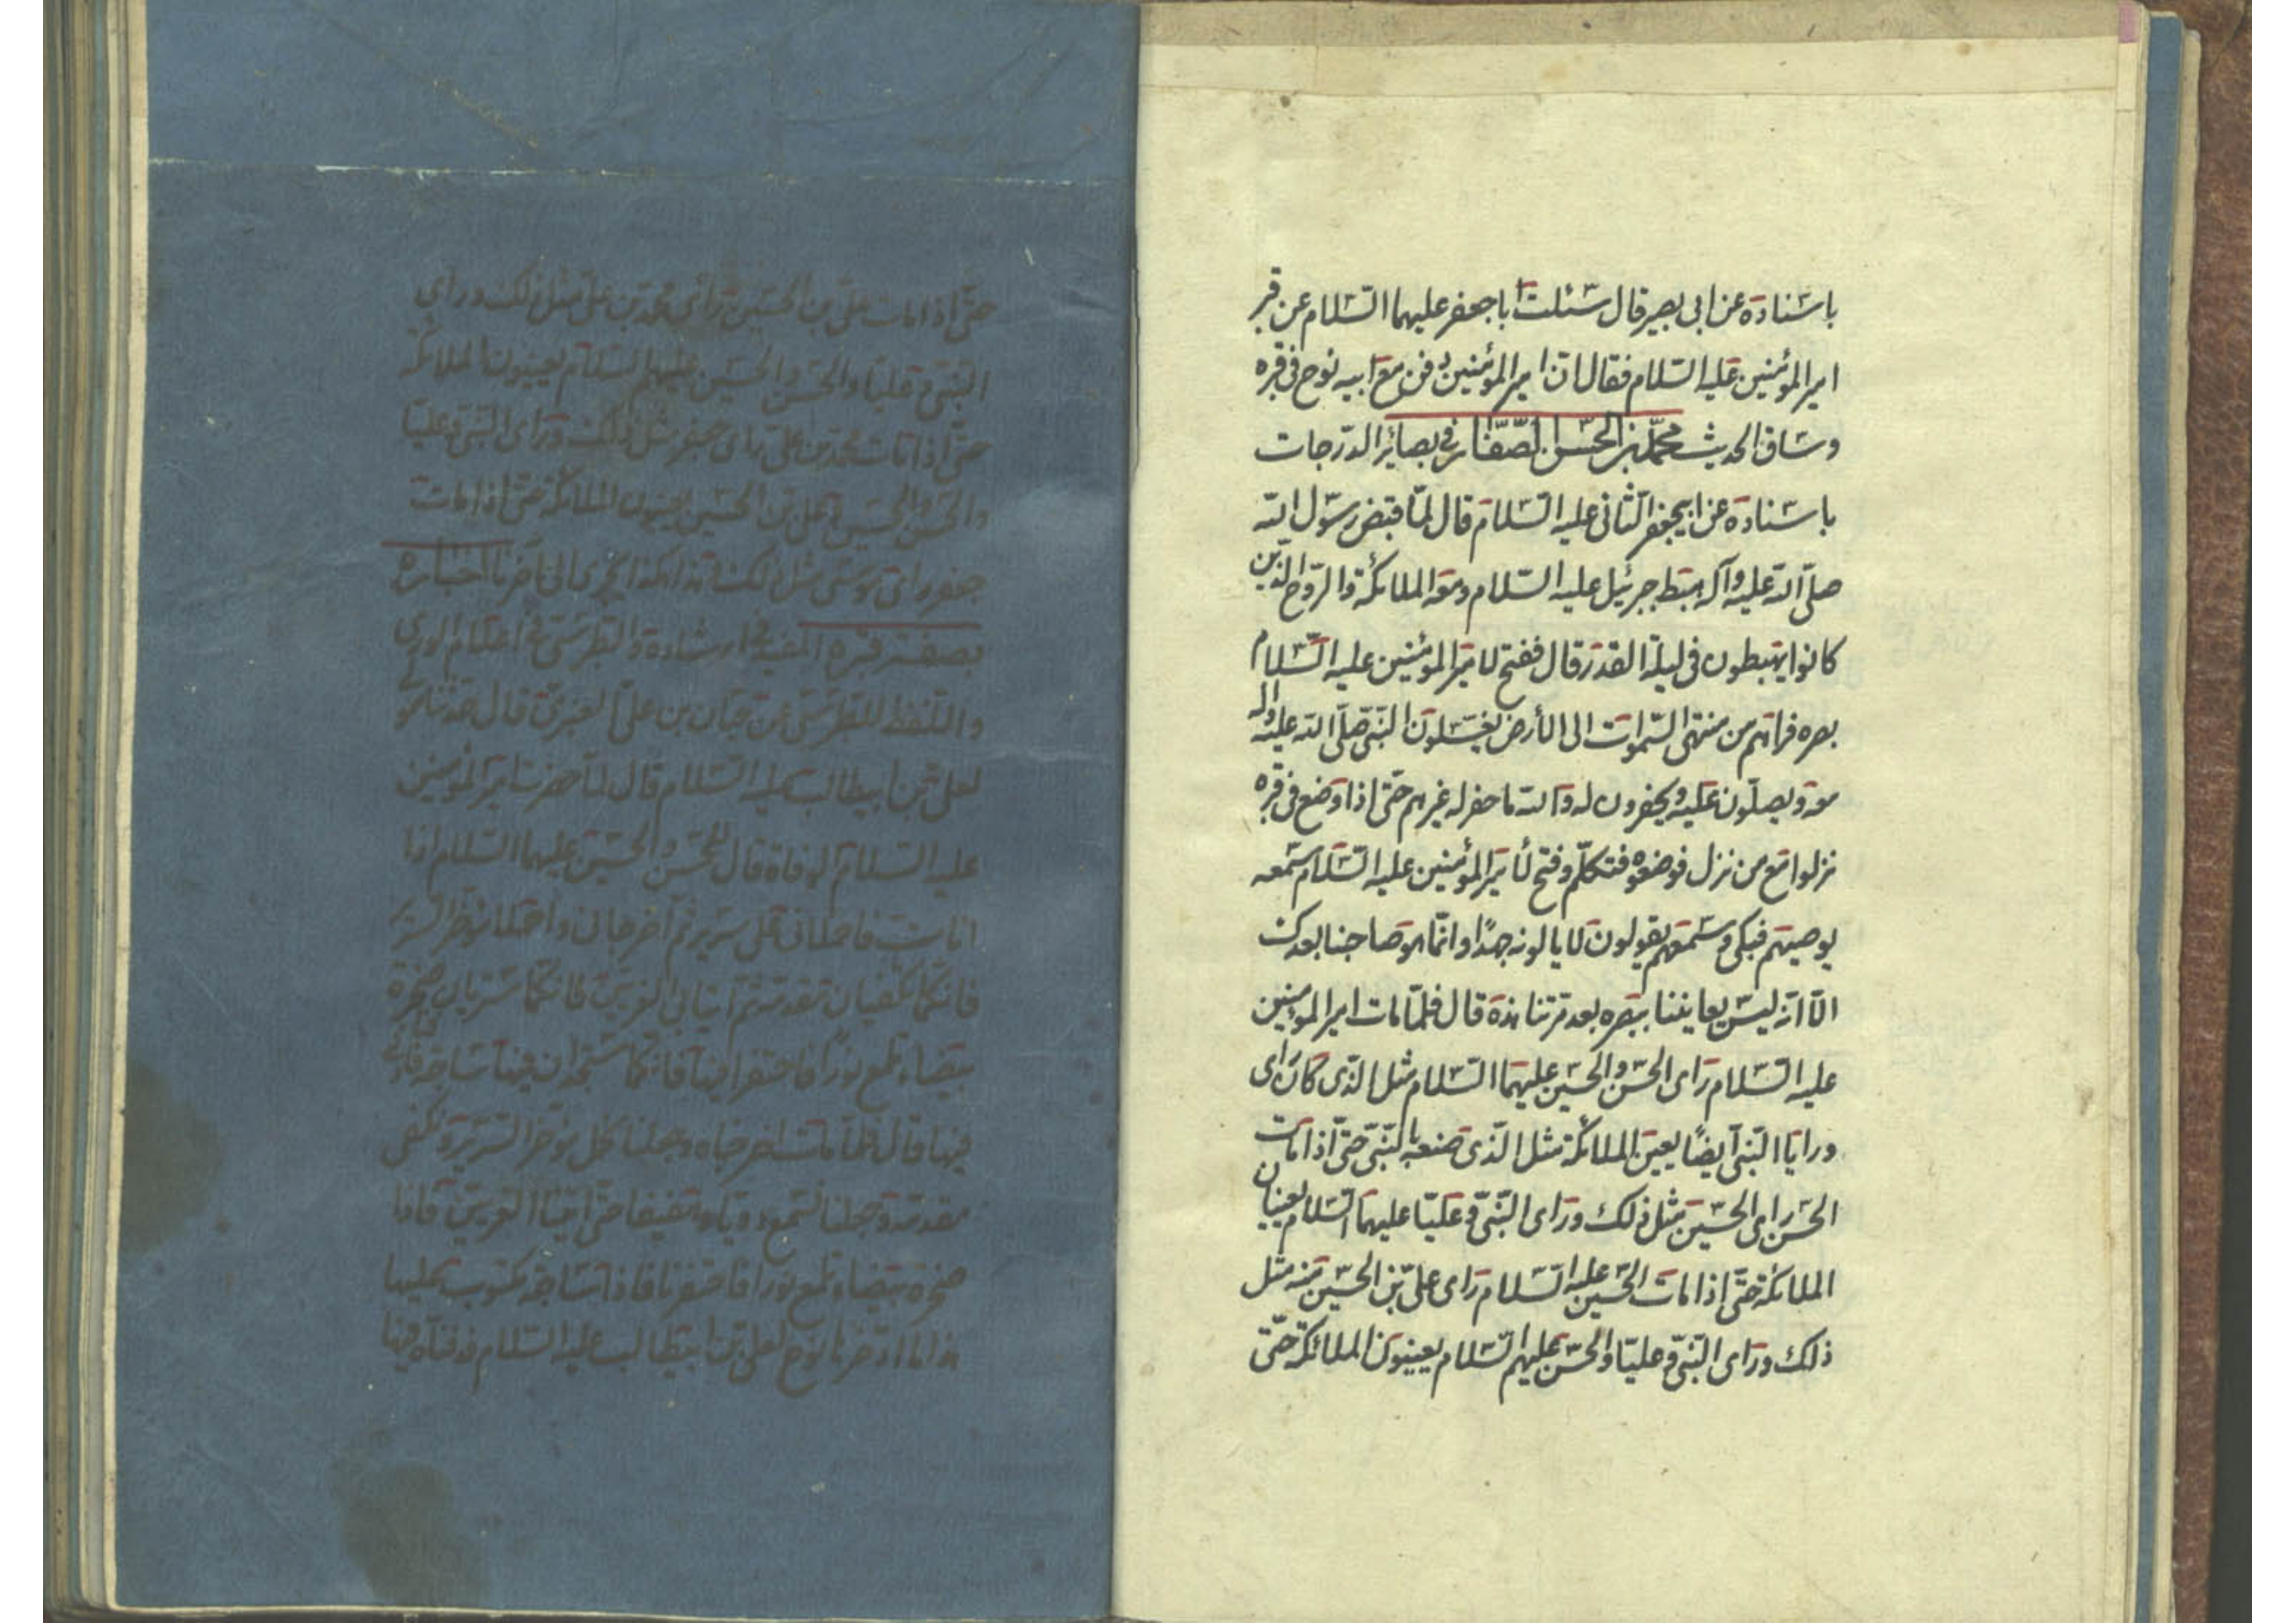 باسناده عن ابی بصیر قال سئلت ابا جعفر علیهما السلام عن قبر
امیر المؤمنین علیه السلام فقال ان امیر المؤمنین دفن مع ابیه نوح فی قبره
وساق الحدیث محمد بن الحسن الصفار فی بصائر الدرجات
باسناده عن ابیجعفر الثانی علیه السلام قال لما قبض رسول الله
صلی الله علیه وآله هبط جبرئیل علیه السلام ومعه الملائکة والروح الذین
کانوا یهبطون فی لیلة القدر قال ففتح لامیر المؤمنین علیه السلام
بصره فراهم من منتهی السموات الی الأرض یغسلون النبی صلی الله علیه واله
معه ویصلون علیه ویحفرون له والله ما حفر له غیرهم حتی اذا وضع فی قبره
نزلوا مع من نزل فوضعوه فتکلم وفتح لأمیر المؤمنین علیه السلام سمعه
یوصیهم فبکی وسمعهم یقولون لا یالونه جهدًا وانما هو صاحبنا بعدک
الا انه لیس یعایننا ببصره بعد مرتنا هذه قال فلما مات امیر المؤمنین
علیه السلام رای الحسن والحسین علیهما السلام مثل الذی کان رای
ورایا النبی أیضًا یعین الملائکة مثل الذی صنعه بالنبی حتی اذا مات
الحسن رای الحسین مثل ذلک ورای النبی وعلیا علیهما السلام یعینان
الملائکة حتی اذا مات الحسین علیه السلام رای علی بن الحسین منه مثل
ذلک ورای النبی وعلیا والحسن علیهم السلام یعینون الملائکة حتی
حتی اذا مات علی بن الحسین رای محمد بن علی مثل ذلک ورای
النبی وعلیا والحسن والحسین علیهم السلام یعینون الملائکة
حتی اذا مات محمد بن علی رای جعفر مثل ذلک ورای النبی وعلیا
والحسن والحسین وعلی بن الحسین یعینون الملائکة حتی اذا مات
جعفر رای موسی مثل ذلک هکذا یجری الی اخرنا اخباره
بصفة قبره المفید فی ارشاده والطبرسی فی اعلام الوری
واللفظ للطبرسی عن حبان بن علی العنزی قال حدثنا مولی
لعلی بن ابیطالب علیه السلام قال لما حضرت امیر المؤمنین
علیه السلام الوفاة قال للحسن والحسین علیهما السلام اذا
انا مت فاحملانی علی سریر ثم اخرجانی واحملا مؤخر السریر
فانکما تکفیان مقدمه ثم ائتیا بی الغریین فانکما ستریان صخرة
بیضاء تلمع نورًا فاحتفرا فیها فانکما ستجدان فیها ساجة فادفنانی
فیها قال فلما مات اخرجناه وجعلنا نحمل مؤخر السریر ونکفی
مقدمه وجعلنا نسمع دویا وحفیفا حتی اتینا الغریین فاذا
صخرة بیضاء تلمع نورا فاحتفرنا فاذا ساجة مکتوب علیها
هذا ما ادخر نوح لعلی بن ابیطالب علیه السلام فدفناه فیها